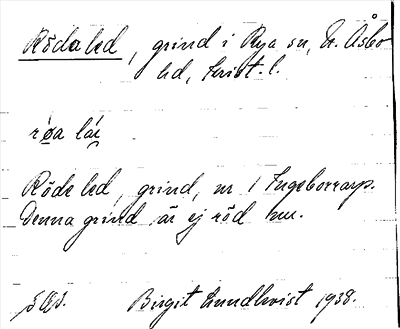 Röda led, grind i Rya sn, N. Åsbo
hd, Krist. l.
röa lá
Röde led, grind, nr 1 Ingeborrarp.
Denna grind är ej röd nu.
Birgit Lundkvist 1938.